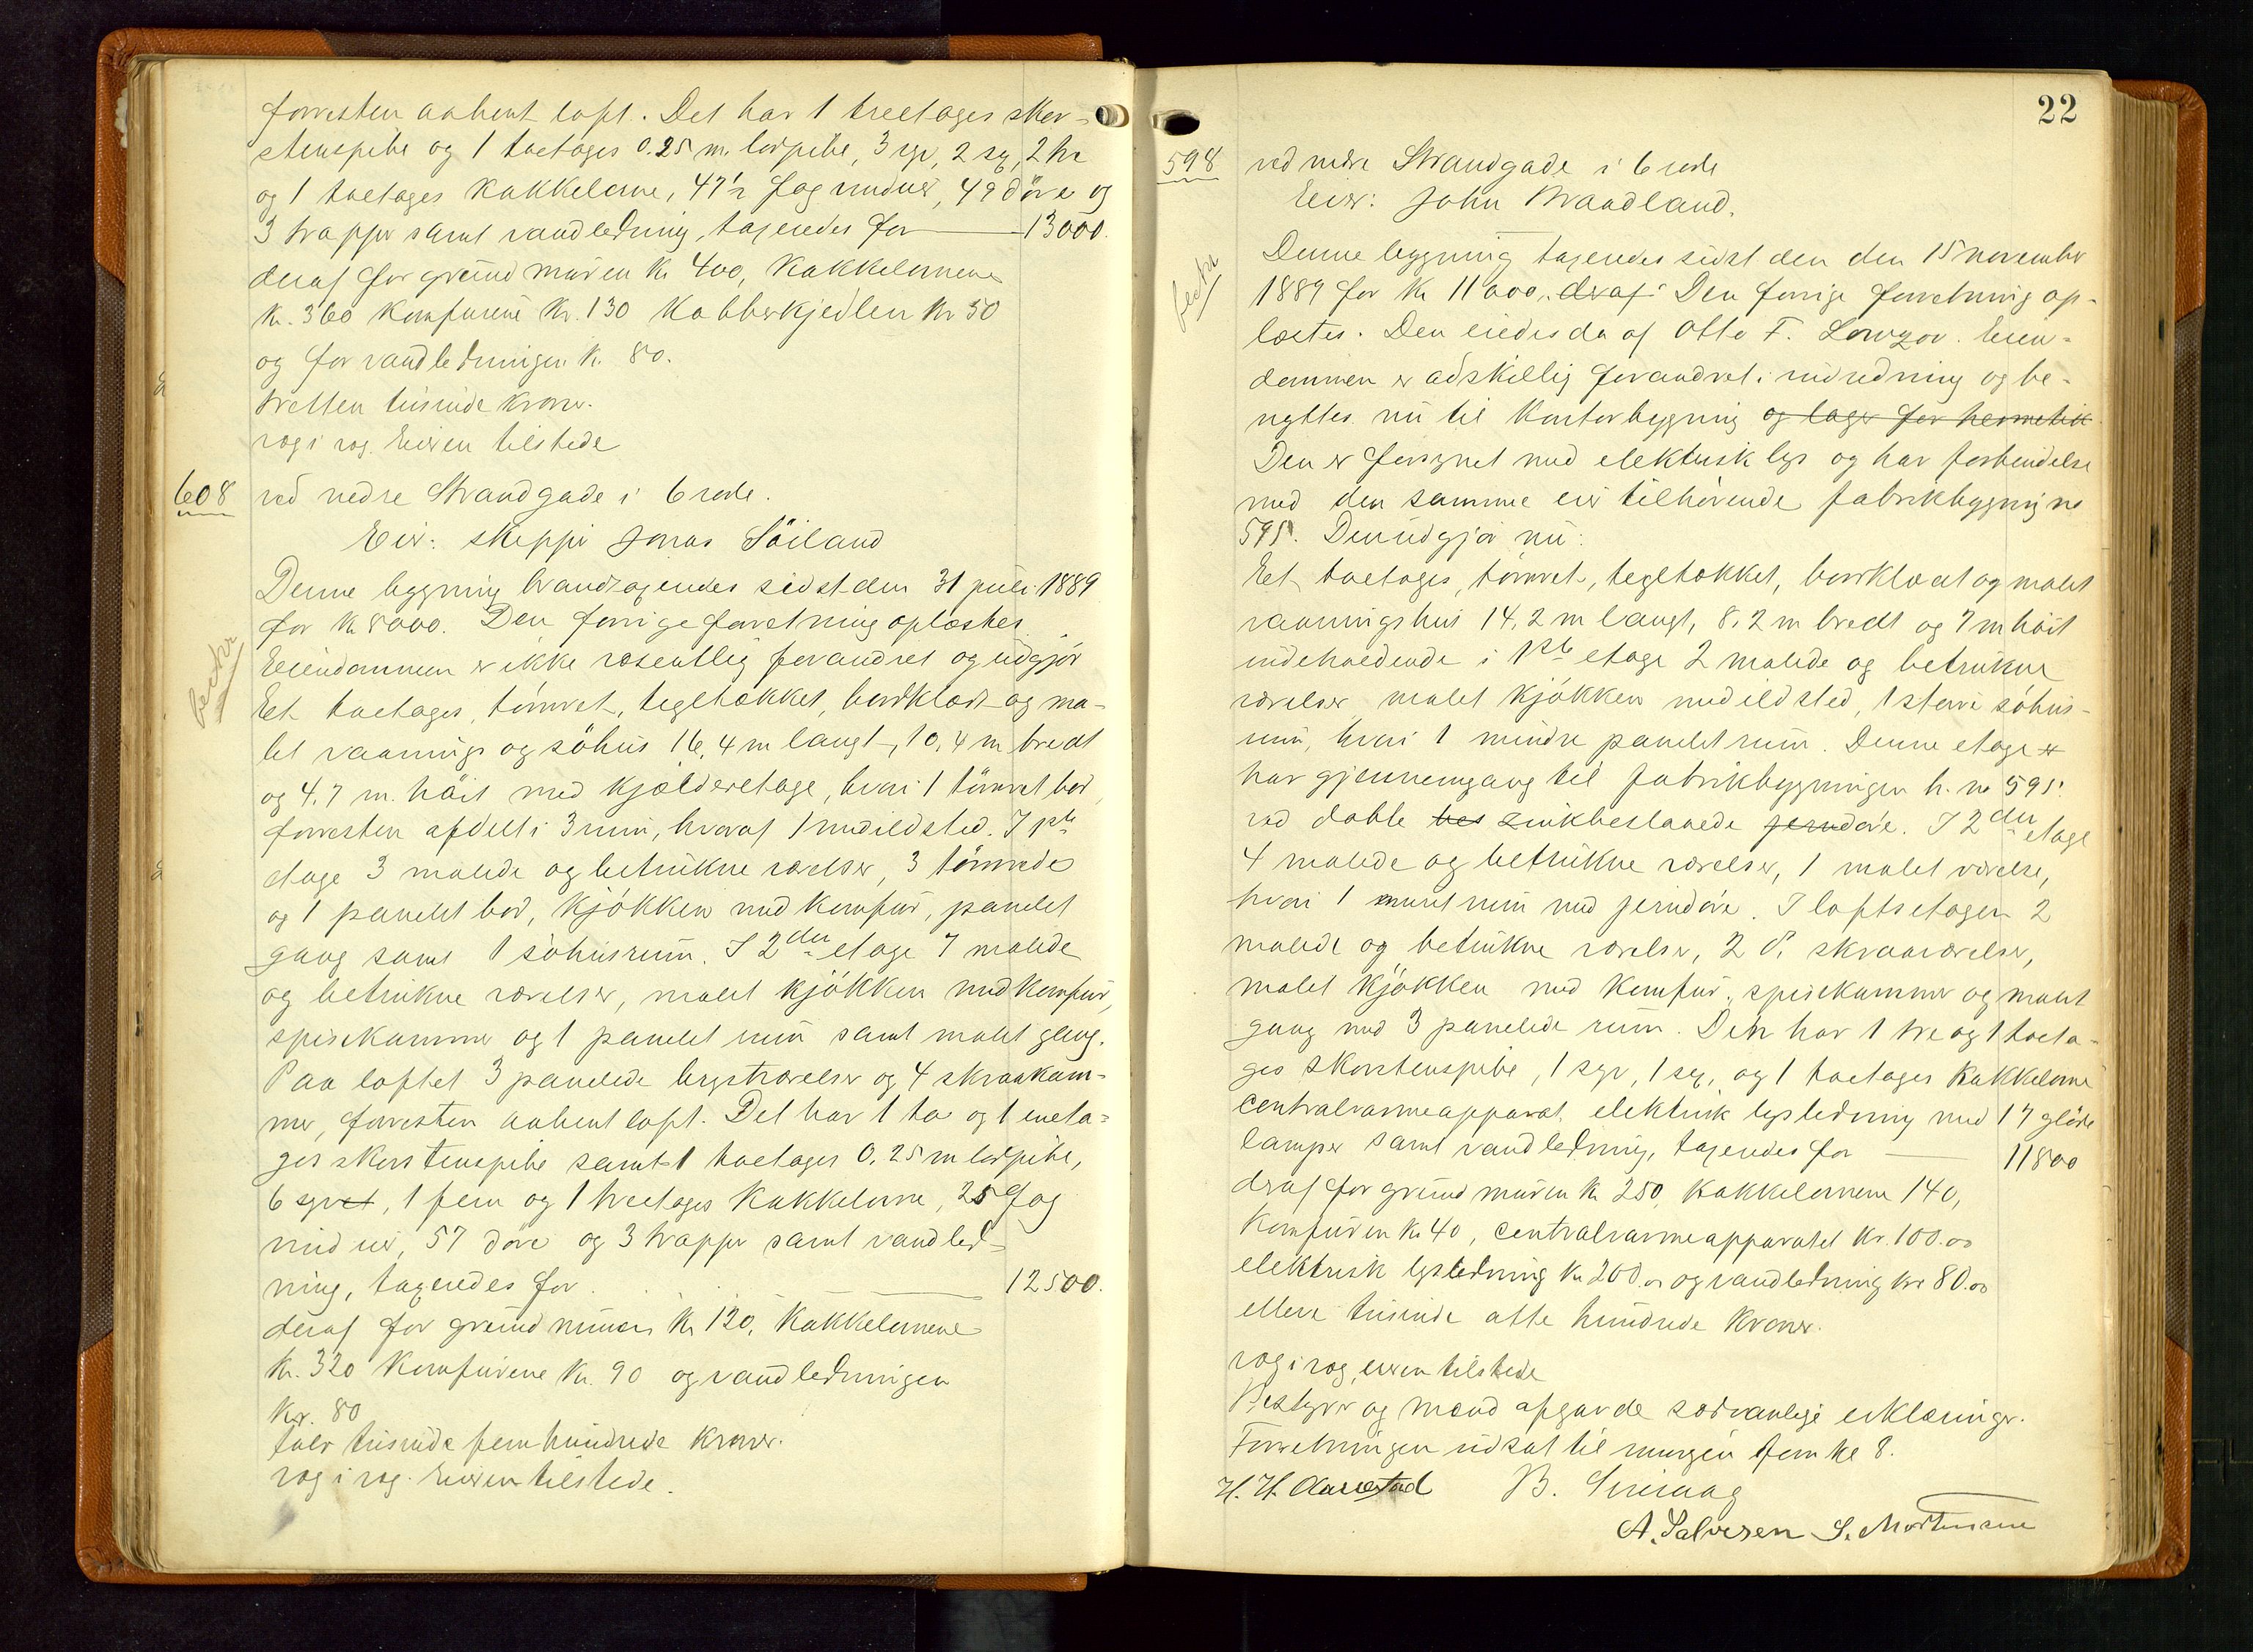 forresten aabent loft. Det har 1 treetages skor-
stenspibe og 1 toetages 0.25 m. lodpibe, 3 syv, 2 sex, 2 to
og 1 toetages kakkelovne, 47½ fag vinduer, 49 döre og
3 trapper samt vandledning, taxeredes for 13000.
deraf for grundmuren kr 400, kakkelovnene
kr. 360 komfurene kr. 130 kobberkjedlen kr 50
og for vandledningen kr. 80.
tretten tusinde kroner.
rog i rog. Eieren tilstede
608 ved nedre Strandgade i 6 rode.
Eier: skipper Jonas Söiland
Denne bygning brandtaxeredes sidst den 31 juli 1889
for kr 8000. Den forrige forretning oplæstes.
Eiendommen er ikke væsentlig forandret og udgjör
Et toetages, tömret, tegltækket, bordklædt og ma-
let vaanings og söhus 16,4 m langt, 10,4 m bredt
og 4.7 m. höit med kjælderetage, hvori 1 tömret bod,
forresten afdelt i 3 rum, hvoraf 1 med ildsted. I 1ste
etage 3 malede og betrukne værelser, 3 tömrede
og 1 panelet bod, kjökken med komfur, panelet
gang samt 1 söhusrum. I 2den etage 7 malede
og betrukne værelser, malet kjökken med komfur,
spisekammer og 1 panelet rum samt malet gang.
Paa loftet 3 panelede kvistværelser og 4 skraakam-
mer, forresten aabent loft. Det har 1 to og 1 eneta-
ges skorstenspibe samt 1 toetages 0.25 m lodpibe,
6 syvet, 1 fem og 1 treetages kakkelovne, 25 fag
vinduer, 57 döre og 3 trapper samt vandled-
ning, taxeredes for 12500.
deraf for grundmuren kr 120, kakkelovnene
kr. 320 komfurene kr. 90 og vandledningen
kr. 80
tolv tusinde femhundrede kroner.
rog i rog. Eieren tilstede.
22
598 ved nedre Strandgade i 6 rode
Eier: John Braadland.
Denne bygning taxeredes sidst den den 15 november
1889 for kr 11000, deraf Den forrige forretning op-
læstes. Den eiedes da af Otto F. Lowzow. Eien-
dommen er adskillig forandret i indredning og be-
nyttes nu til kontorbygning og lager for hermetik
Den er forsynet med elektrisk lys og har forbindelse
med den samme eier tilhörende fabrikbygning no
595. Den udgjör nu:
Et toetages, tömret, tegltækket, bordklædt og malet
vaaningshus 14,2 m langt, 8,2 m bredt og 7 m höit
indeholdende i 1ste etage 2 malede og betrukne
værelser malet kjökken med ildsted, 1 större söhus-
rum, hvori 1 mindre panelet rum. Denne etage er
har gjennemgang til fabrikbygningen h. no 595.
ved doble bes zinkbeslaaede jerndöre. I 2den etage
4 malede og betrukne værelser, 1 malet værelse,
hvori 1 muret rum med jerndöre. I loftsetagen 2
malede og betrukne værelser, 2 d. skraaværelser,
malet kjökken med komfur, spisekammer og malet
gang med 3 panelede rum. Den har 1 tre og 1 toeta-
ges skorstenspibe, 1 syv, 1 sex, og 1 toetages kakkelovne
centralvarmeapparat, elektrisk lysledning med 17 glöde
lamper samt vandledning, taxeredes for 11800
deraf for grundmuren kr 250, kakkelovnene 140,
komfuren kr 40, centralvarmeapparatet kr. 100.00
elektrisk lysledning kr 200.00 og vandledning kr 80.00
elleve tusinde otte hundrede kroner.
rog i rog, eieren tilstede
Bestyrer og mænd afgav de sædvanlige erklæringer.
Forretningen udsat til morgen fem kl 8.
H. H. Aarestad B.
A. Salvesen S. Mortensen